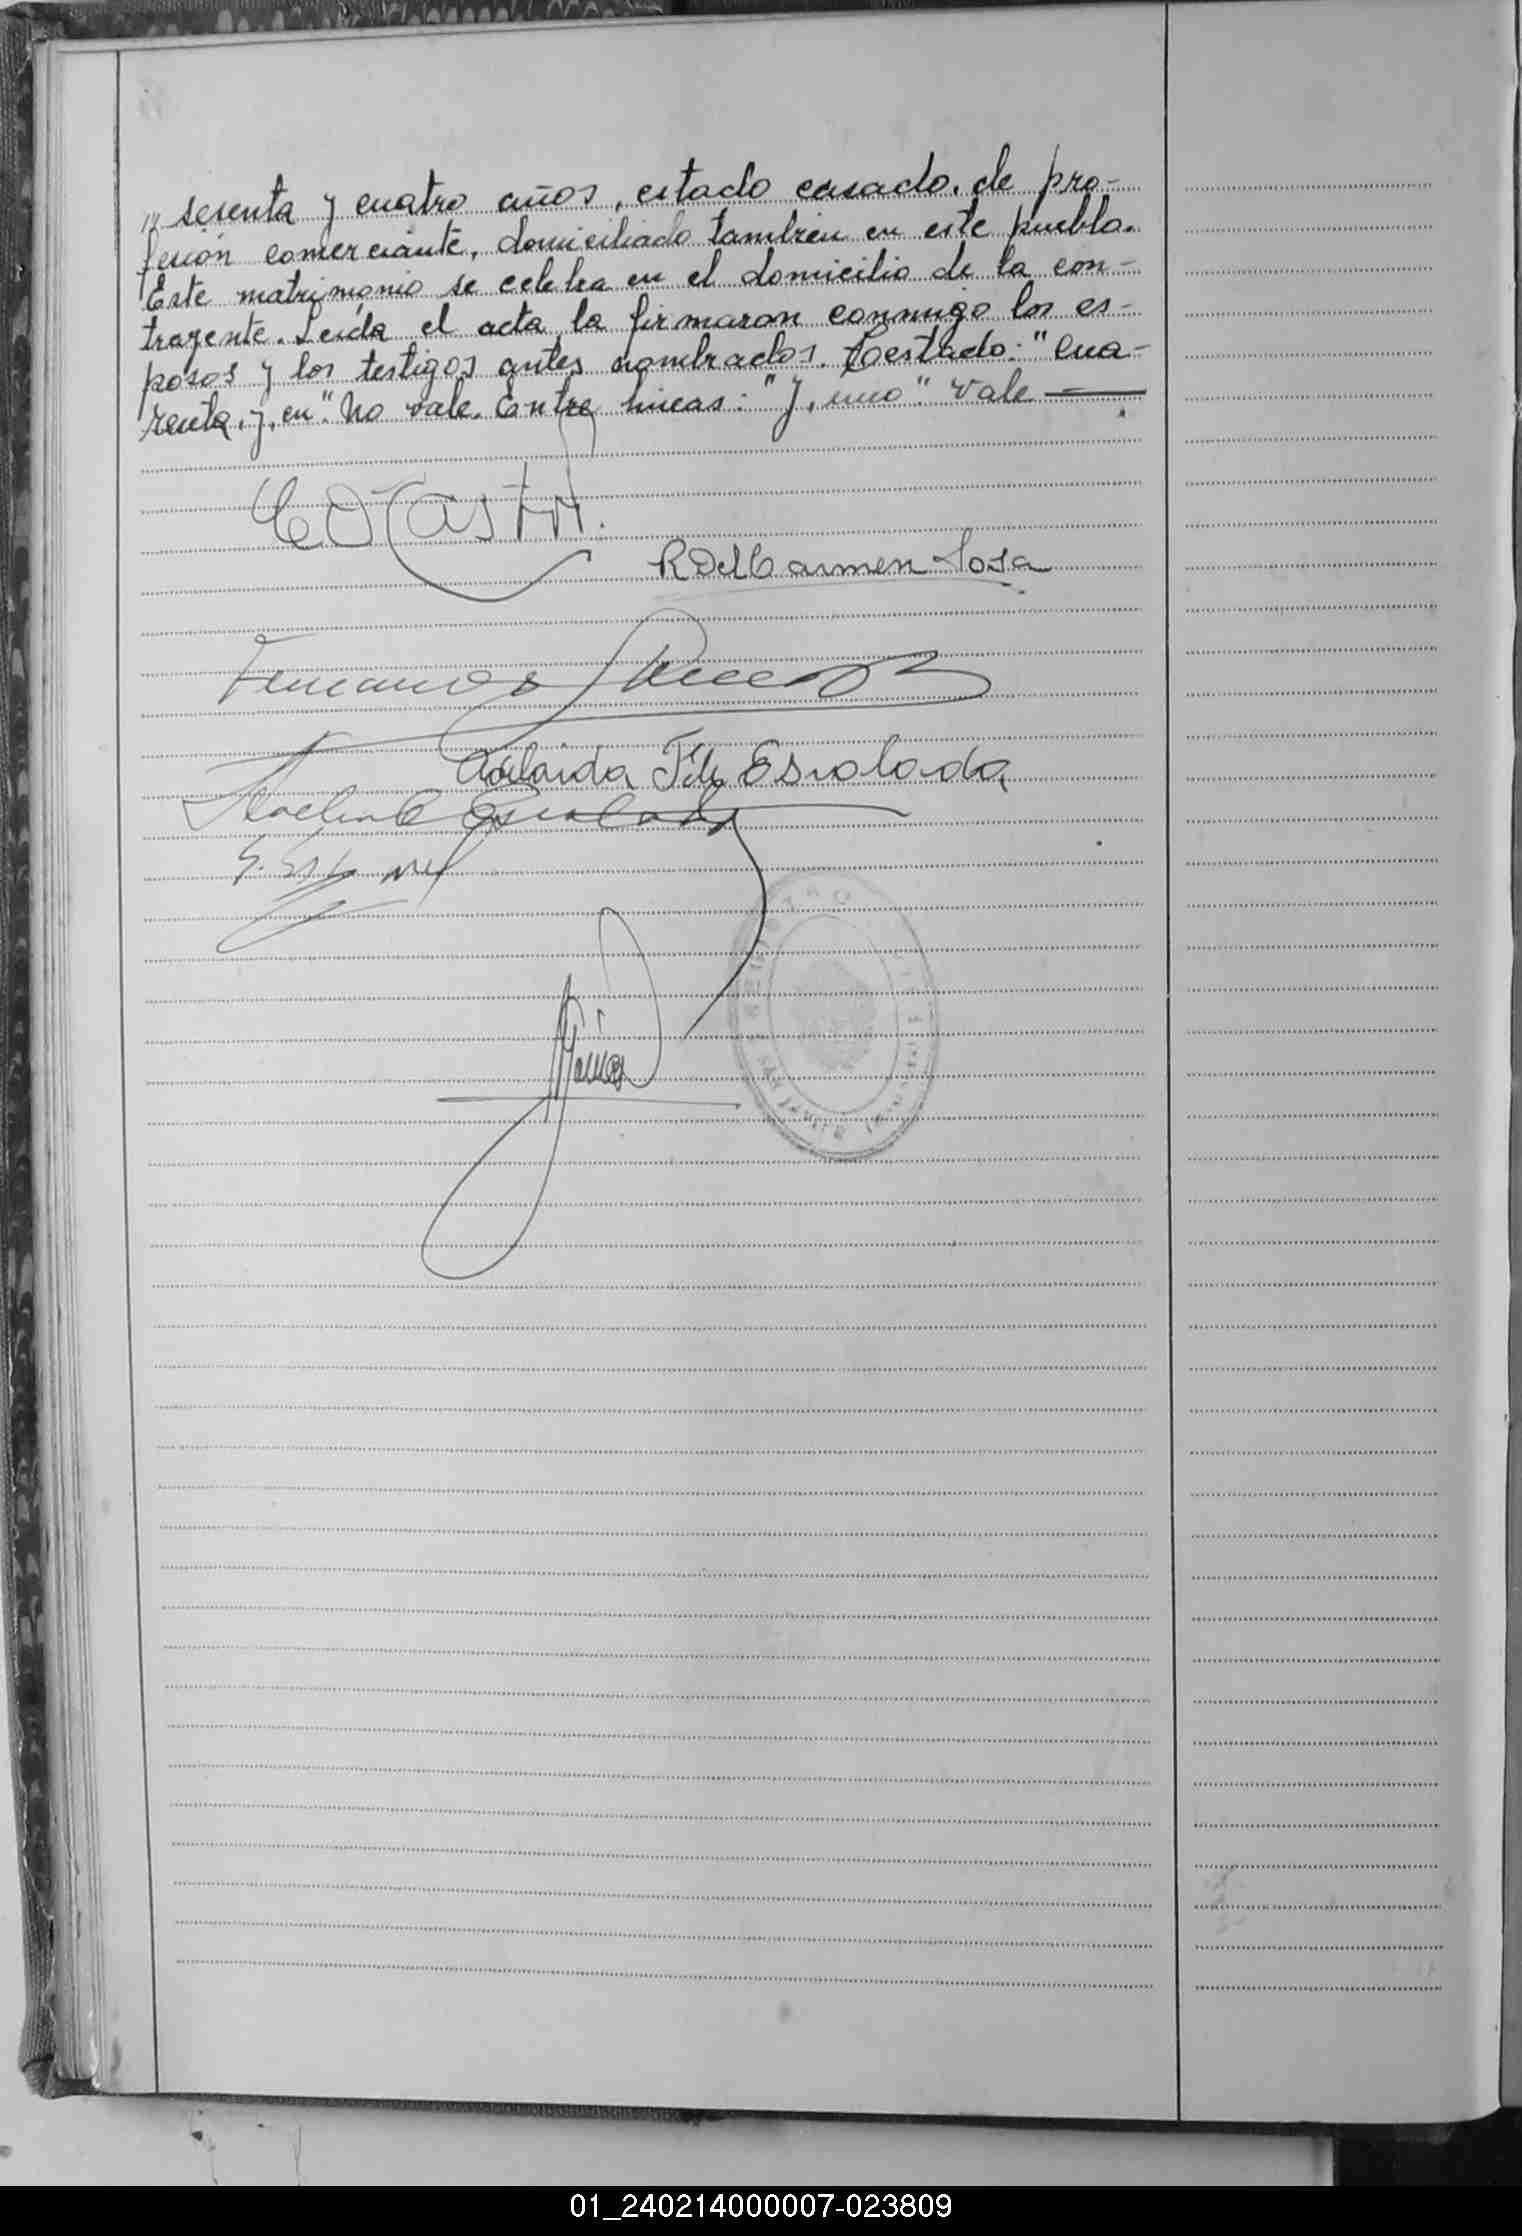 /// sesenta y cuatro años, estado casado, de pro-
fesión comerciante, domiciliado también en este pueblo.
Este matrimonio se celebra en el domicilio de la con-
trayente. Leída el acta, la firmaron conmigo los es-
posos y los testigos antes nombrados. Testado: "cua-
renta, y, en". No vale. Entre líneas: "y, uno". Vale
R Del Carmen Sosa
Adelaida F. de Escalada
Escalada
01_240214000007-023809